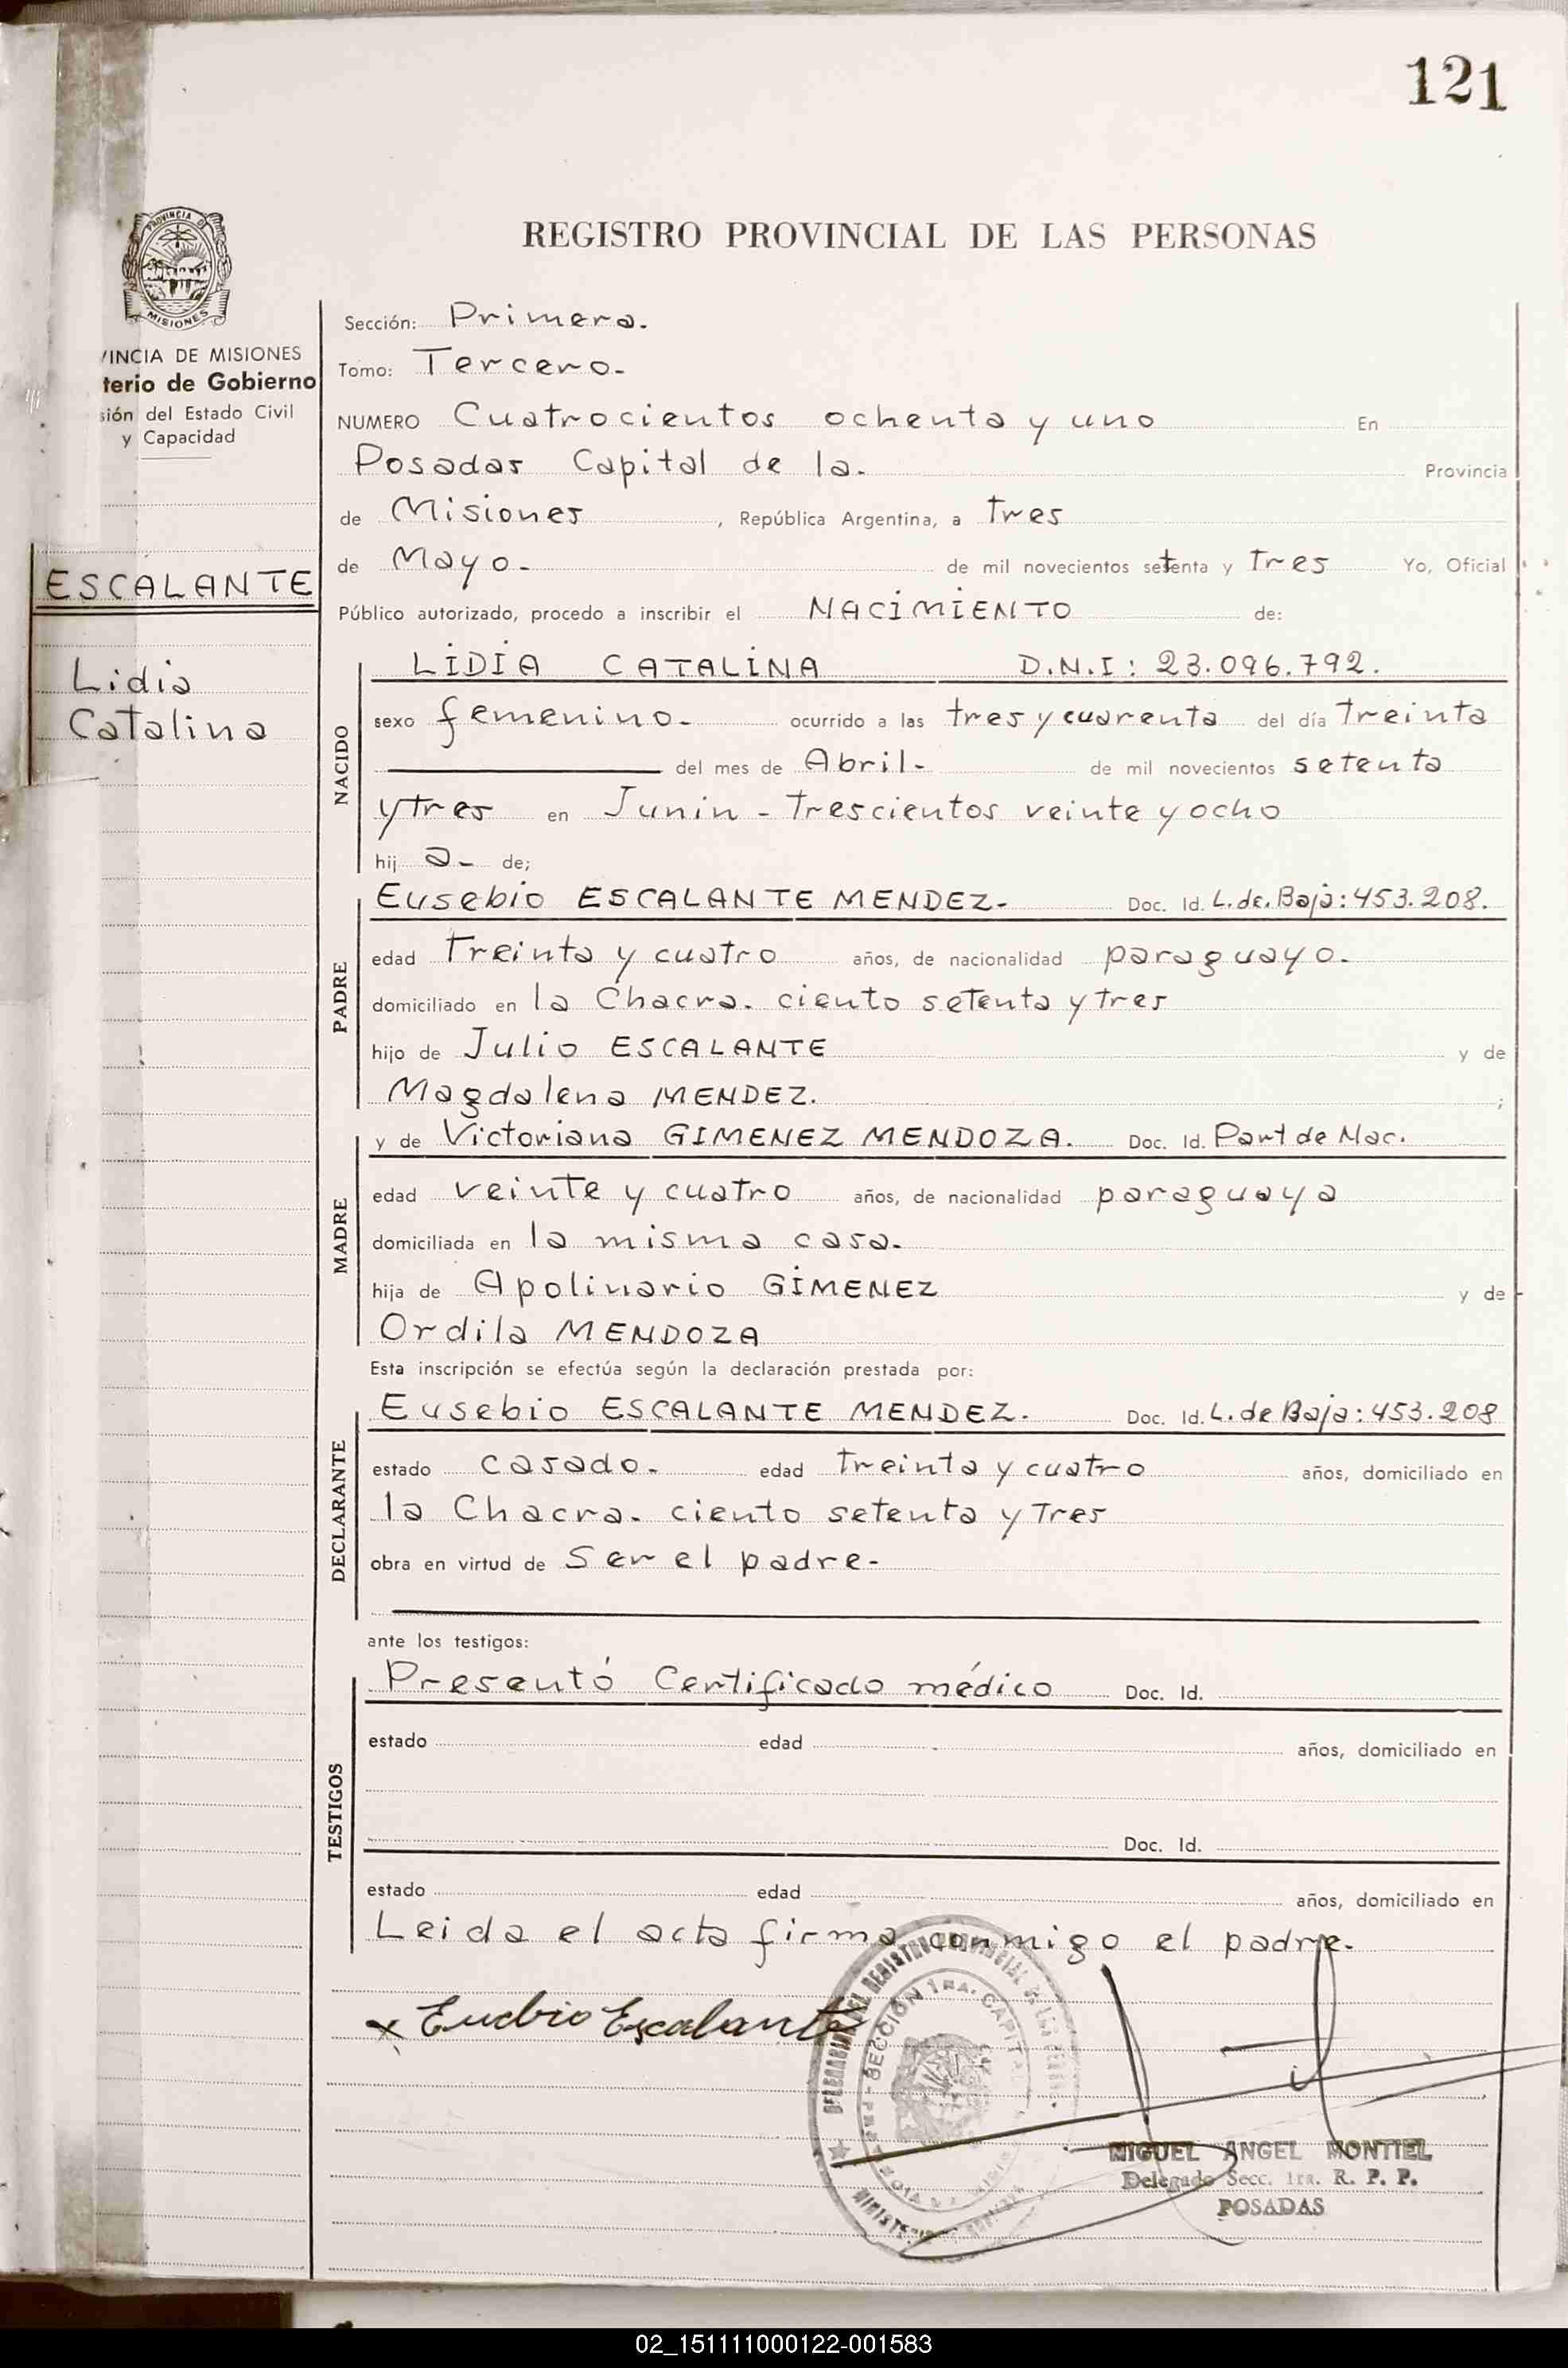 121
REGISTRO PROVINCIAL DE LAS PERSONAS
PROVINCIA D
MISIONES
VINCIA DE MISIONES
terio de Gobierno
sión del Estado Civil
y Capacidad
ESCALANTE
Lidia
Catalina
Sección: Primera.
Tomo: Tercero-
NUMERO Cuatrocientos ochenta y uno En
Posadas Capital de la. Provincia
de Misiones , República Argentina, a tres
de Mayo- de mil novecientos setenta y Tres Yo, Oficial
Público autorizado, procedo a inscribir el NACIMIENTO de:
NACIDO
LIDIA CATALINA D.N.I: 23.096.792.
sexo femenino- ocurrido a las tres y cuarenta del día Treinta
del mes de Abril- de mil novecientos setenta
y tres en Junin - Trescientos veinte y ocho
hij a- de;
PADRE
Eusebio ESCALANTE MENDEZ- Doc. Id. L. de. Baja: 453.208.
edad Treinta y cuatro años, de nacionalidad paraguayo-
domiciliado en la Chacra. ciento setenta y tres
hijo de Julio ESCALANTE y de
Magdalena MENDEZ. ;
MADRE
y de Victoriana GIMENEZ MENDOZA. Doc. Id. Part de Nac.
edad veinte y cuatro años, de nacionalidad paraguaya
domiciliada en la misma casa-
hija de Apolinario GIMENEZ y de
Ordila MENDOZA
Esta inscripción se efectúa según la declaración prestada por:
DECLARANTE
Eusebio ESCALANTE MENDEZ. Doc. Id. L. de Baja: 453.208
estado casado- edad Treinta y cuatro años, domiciliado en
la Chacra. ciento setenta y Tres
obra en virtud de Ser el padre-
ante los testigos:
TESTIGOS
Presentó Certificado médico Doc. Id.
estado edad años, domiciliado en
Doc. Id.
estado edad años, domiciliado en
Leida el acta firma conmigo el padre.
x Eucbrio Escalante
SECCIÓN 1RA. CAPITAL
MIGUEL ANGEL MONTIEL
Delegado Secc. 1ra. R. P. P.
POSADAS
02_151111000122-001583